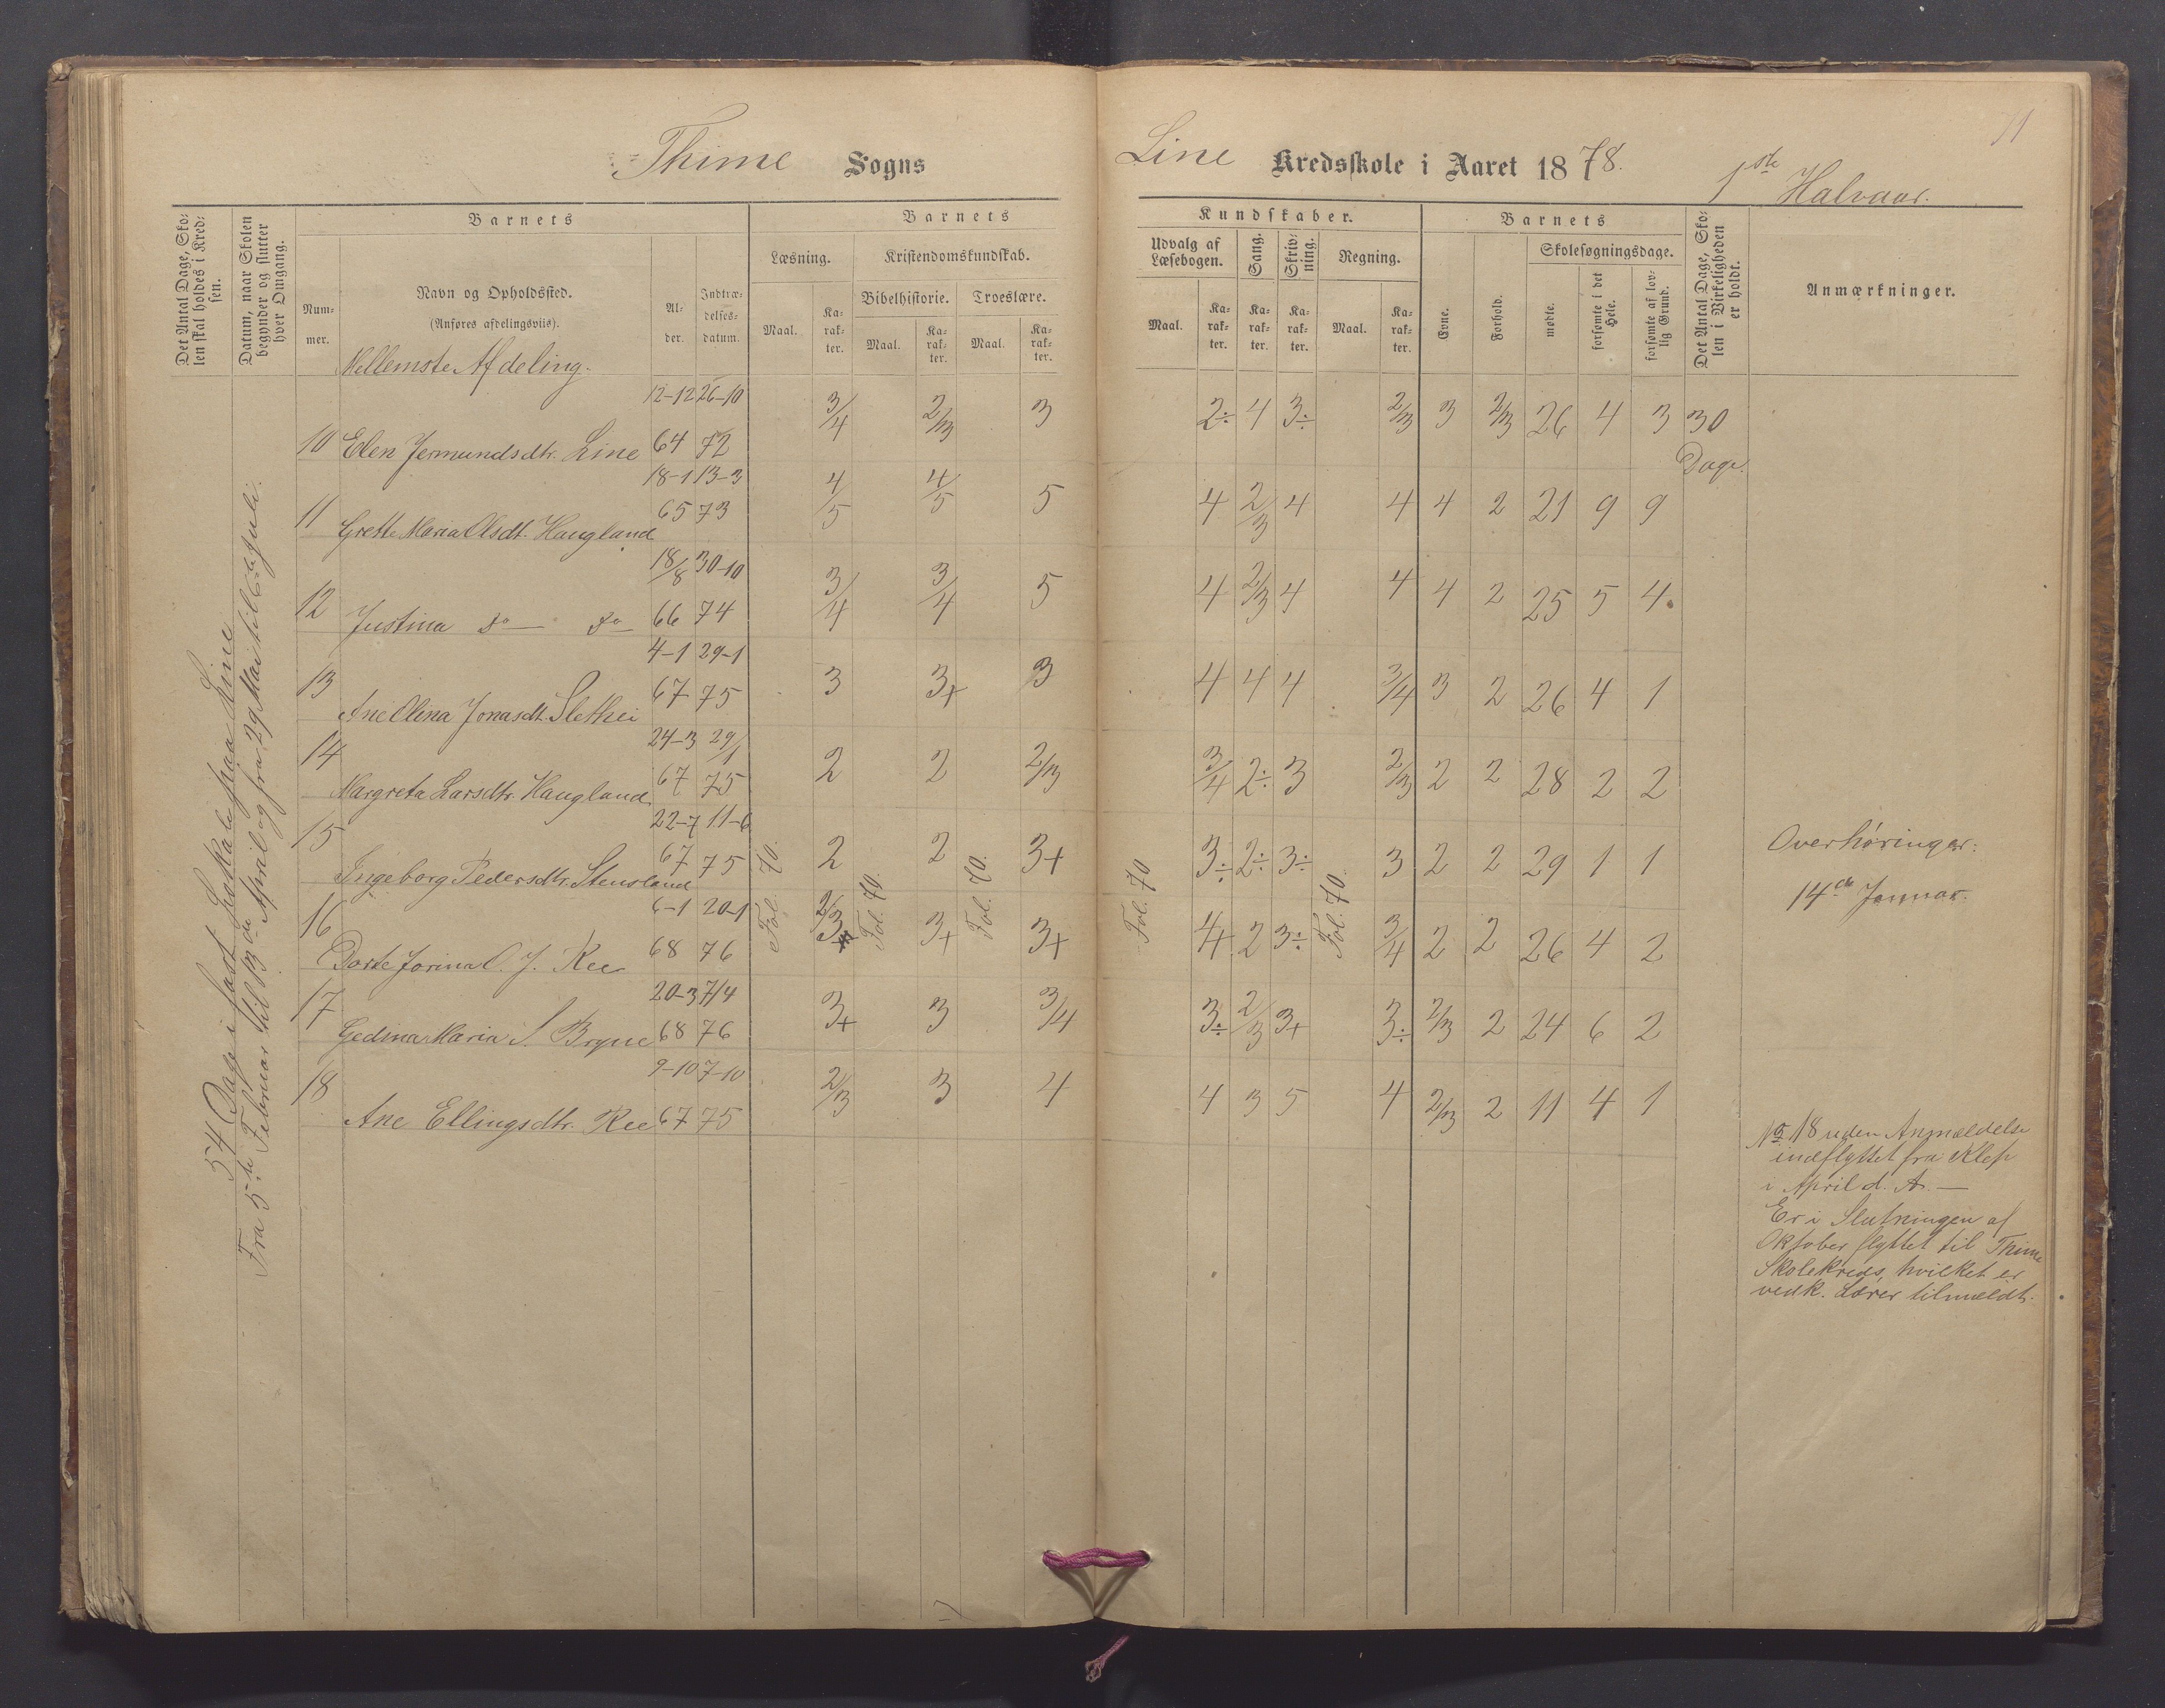 Thime Sogns
Line Kredsskole i Aaret 1878.
1ste Halvaar.
71
Det Antal Dage, Skolen skal holdes i Kredsen.
Datum, naar Skolen begynder og slutter hver Omgang.
Barnets
Nummer.
Navn og Opholdssted.
(Anføres afdelingsviis).
Mellemste Afdeling.
Alder.
Indtrædelsesdatum.
Barnets
Læsning.
Kristendomskundskab.
Bibelhistorie. Troeslære.
Maal. Karakter. Maal. Karakter. Maal. Karakter.
Kundskaber.
Udvalg af Læsebogen.
Sang.
Skrivning.
Regning.
Maal. Karakter. Karakter. Karakter. Maal. Karakter.
Barnets
Evne.
Forhold.
Skolesøgningsdage.
mødte.
forsømte i det Hele.
forsømte af lovlig Grund.
Det Antal Dage, Skolen i Virkeligheden er holdt.
Anmærkninger.
54 Dage i fast Lokale paa Line
Fra 5te Februar til 13de April og fra 29 Mai til 6te Juli.
12-12 26-10
10 Elen Jermundsdtr. Line 64 72 3/4 2/3 3 2÷ 4 3÷ 2/3 3 2/3 26 4 3 30 Dage.
18-1 13-3
11 Grette Maria Olsdt. Haugland 65 73 4/5 4/5 5 4 2/3 4 4 4 2 21 9 9
18/8 30-10
12 Justina do do 66 74 3/4 3/4 5 4 2/3 4 4 4 2 25 5 4
4-1 29-1
13 Ane Olina Jonasdt. Slethei 67 75 3 3+ 3 4 4 4 3/4 3 2 26 4 1
24-3 29/1
14 Margreta Larsdtr. Haugland 67 75 2 2 2/3 3/4 2÷ 3 2/3 2 2 28 2 2
22-7 11-6
15 Ingeborg Pedersdtr. Stensland 67 75 2 2 3+ 3÷ 2÷ 3÷ 3 2 2 29 1 1
6-1 20-1
16 Dorte Jorina O. J. Ree 68 76 2/3 3+ 3+ 4 2 3÷ 3/4 2 2 26 4 2
20-3 7/4
17 Gedina Maria S. Bryne 68 76 3+ 3 3/4 3÷ 2/3 3+ 3÷ 2/3 2 24 6 2
9-10 7-10
18 Ane Ellingsdtr. Ree 67 75 2/3 3 4 4 3 5 4 2/3 2 11 4 1
Fol. 70.
Fol. 70.
Fol. 70.
Fol. 70
Fol. 70.
Overhøringer:
14de Januar.
No 18 uden Anmældelse
indflyttet fra Klep
i April d. A. —
Er i Slutningen af
Oktober flyttet til Thime
Skolekreds, hvilket er
vedk. Lærer tilmældt.